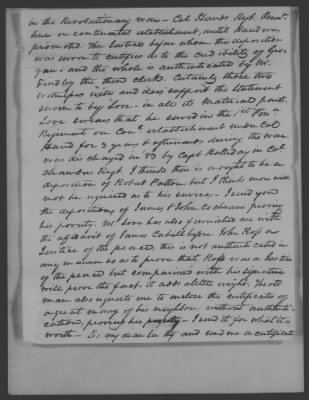 in the Revolutionary war - Col Hands Regt. Penna.
line on continental establishment, until Hand was
promoted. The Justice before whom this deposition
was sworn to certifies to the credibility of Gro
gan - and the whole is authenticated by W.
Findley the then clerk. Certainly those two
witnesses will and does support the Statement
sworn to by Love - in all its material parts.
Love swears that he served in the 1st Pen.
Regiment on Conl. establishment under Col
Hand for 3 years & afterwards during the war.
was discharged in 83 by Capt Holiday in Col
Chambers Regt. I think there is ought to be a
deposition of Robert Patton but I think more will
not be required as to his services - I send you
the depositions of James & John Cochrane proving
his poverty. Mr Love has also furnished me with
the affidavit of James Cahill before John Ross a
Justice of the peace, this is not authenticated in
any manner so as to prove that Ross was a Justice
of the peace but comparison with his signature
will prove the fact. it adds little weight. The old
man also requests me to enclose the certificates of
a great many of his neighbors without authenti-
cation, proving his - I send it for what it is
worth - Do my dear Sir try and send me a certificate